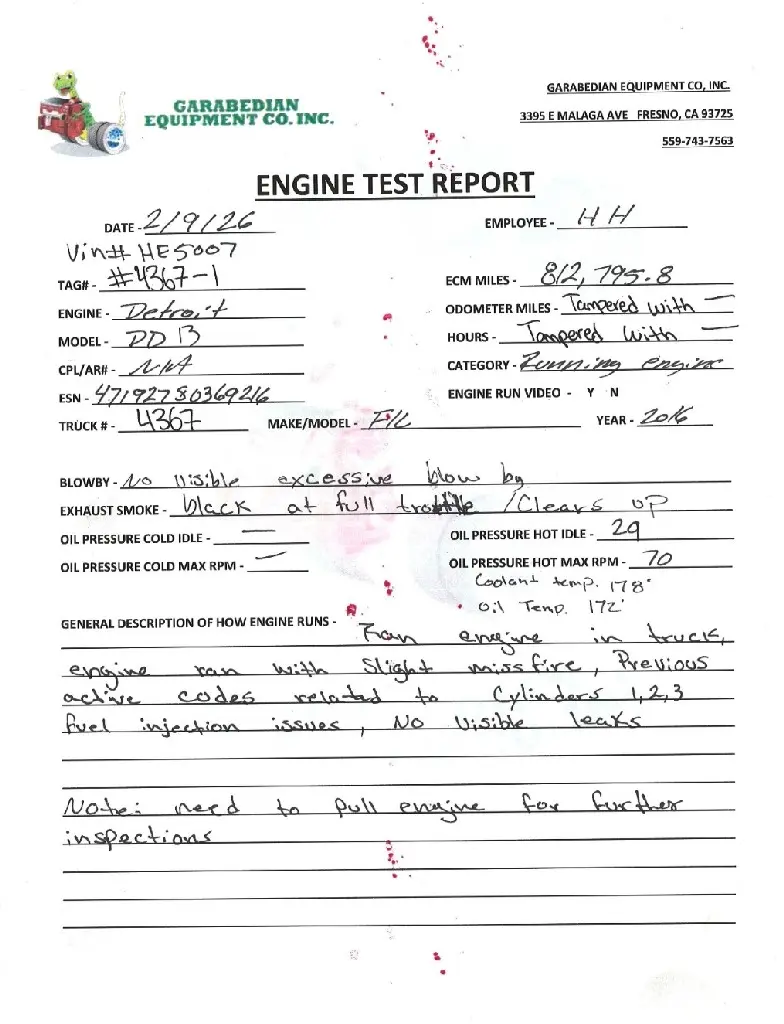 GARABEDIAN EQUIPMENT CO, INC.
GARABEDIAN
EQUIPMENT CO. INC.
3395 E MALAGA AVE FRESNO, CA 93725
559-743-7563
ENGINE TEST REPORT
DATE - 2/9/26 EMPLOYEE - HH
Vin# HE5007
TAG# - #4367-1 ECM MILES - 812,795.8
ENGINE - Detroit ODOMETER MILES - Tampered with —
MODEL - DD13 HOURS - Tampered with —
CPL/AR# - N/A CATEGORY - Running engine
ESN - 471927S0369216 ENGINE RUN VIDEO - Y N
TRUCK # - 4367 MAKE/MODEL - F/L YEAR - 2016
BLOWBY - No Visible excessive blow by
EXHAUST SMOKE - black at full trottle / Clears up
OIL PRESSURE COLD IDLE - — OIL PRESSURE HOT IDLE - 29
OIL PRESSURE COLD MAX RPM - — OIL PRESSURE HOT MAX RPM - 70
Coolant temp. 178°
Oil Temp. 172°
GENERAL DESCRIPTION OF HOW ENGINE RUNS -
Ran engine in truck,
engine ran with Slight missfire, Previous
active codes related to Cylinders 1,2,3
fuel injection issues, No Visible leaks
Note: need to pull engine for further
inspections